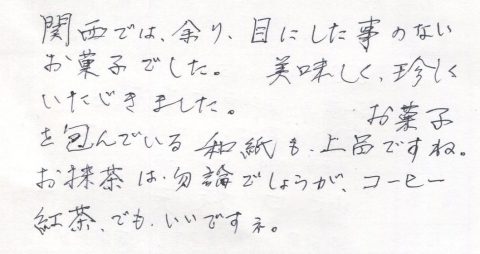 関西では、余り、目にした事のない
お菓子でした。 美味しく、珍しく
いただきました。 お菓子
を包んでいる 和紙も、上品ですね。
お抹茶は、勿論でしょうが、コーヒー
紅茶、でも、いいですネ。